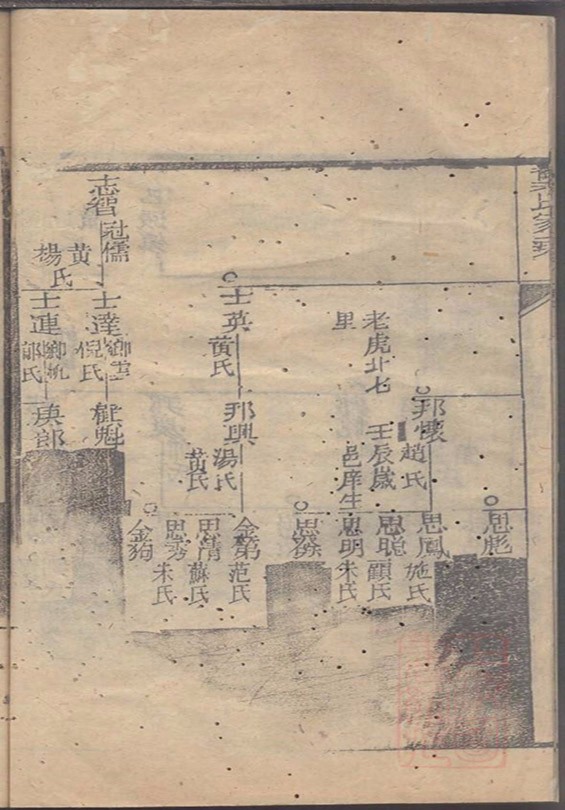 思彪
邦懷
趙氏
壬辰歲
邑庠生
思鳳
施氏
思聰
顧氏
思明
朱氏
老虎北七
里
士英
黄氏
邦興
湯氏
黄氏
金弟
范氏
思清
蘇氏
思秀
朱氏
金狗
志智
冠儒
黄
楊氏
士達
倪氏
士連
邦氏
樾魁
庚郎